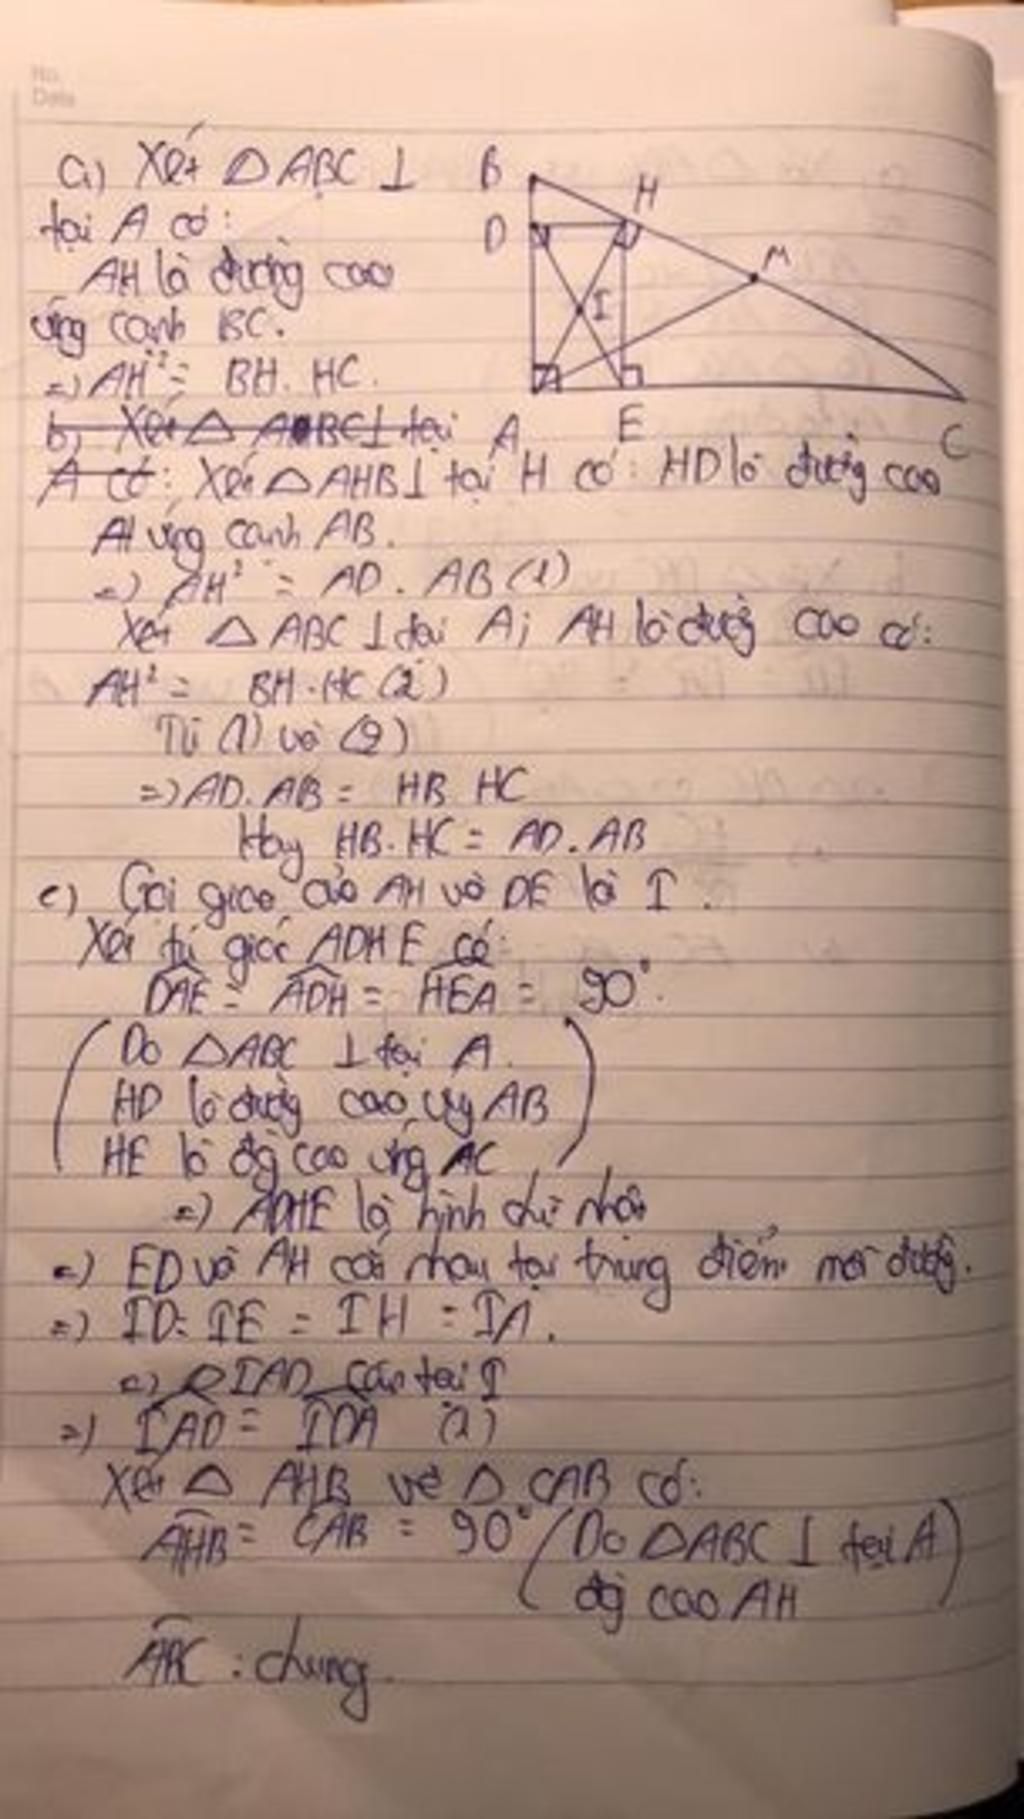 No.
Date
a) Xét △ABC ⊥
tại A có:
AH là đường cao
ứng cạnh BC.
=) AH² = BH. HC.
B
D
H
M
I
A
E
C
b) Xét △ ABC ⊥ tại
A có: Xét △AHB ⊥ tại H có: HD là đường cao
ứng cạnh AB.
=) AH² = AD. AB (1)
Xét △ABC ⊥ tại A; AH là đường cao có:
AH² = BH.HC (2)
Từ (1) và (2)
=) AD. AB = HB HC
Hay HB. HC = AD. AB
c) Gọi giao của AH và DE là I.
Xét tứ giác ADHE có:
DAE = ADH = HEA = 90°.
(Do △ABC ⊥ tại A.
HD là đường cao ứng AB
HE là đg cao ứng AC)
=) ADHE là hình chữ nhật
=) ED và AH cắt nhau tại trung điểm mỗi đường.
=) ID = IE = IH = IA.
=) △IAD cân tại I
=) IAD = IDA (1)
Xét △ AHB và △ CAB có:
AHB = CAB = 90° (Do △ABC ⊥ tại A
đg cao AH)
ABC : chung.